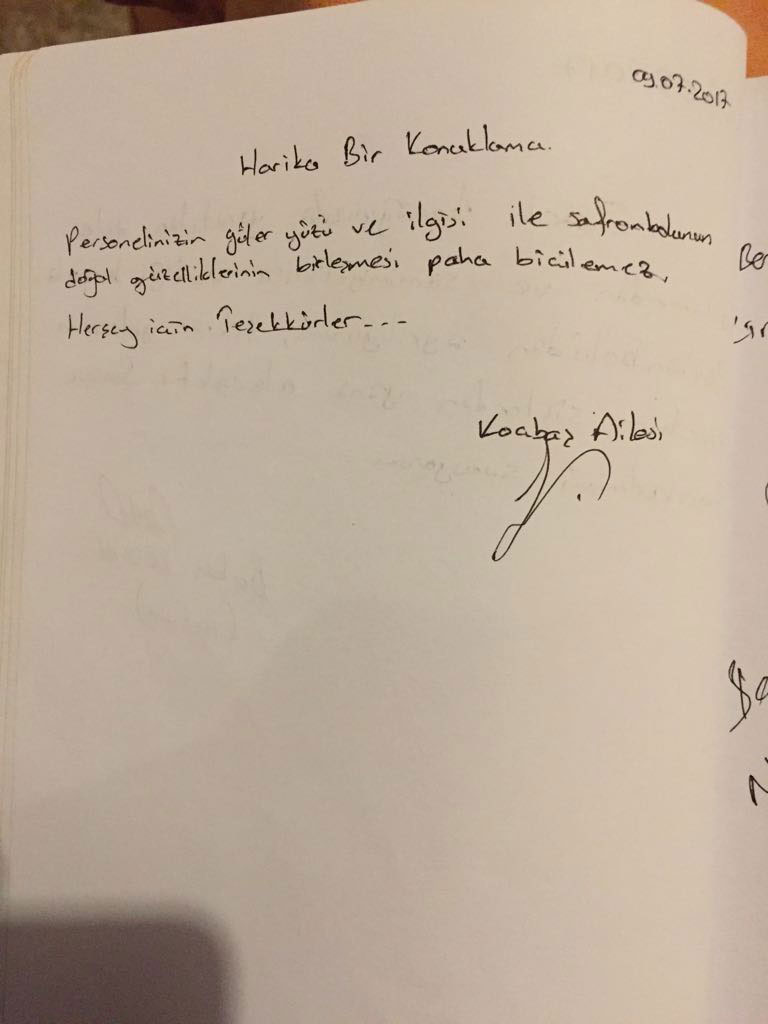 09.07.2017
Harika Bir Konaklama.
Personelinizin güler yüzü ve ilgisi ile safranbolunun
doğal güzelliklerinin birleşmesi paha biçilemez,
Herşey için Teşekkürler---
Kocabaz Ailesi
Ber